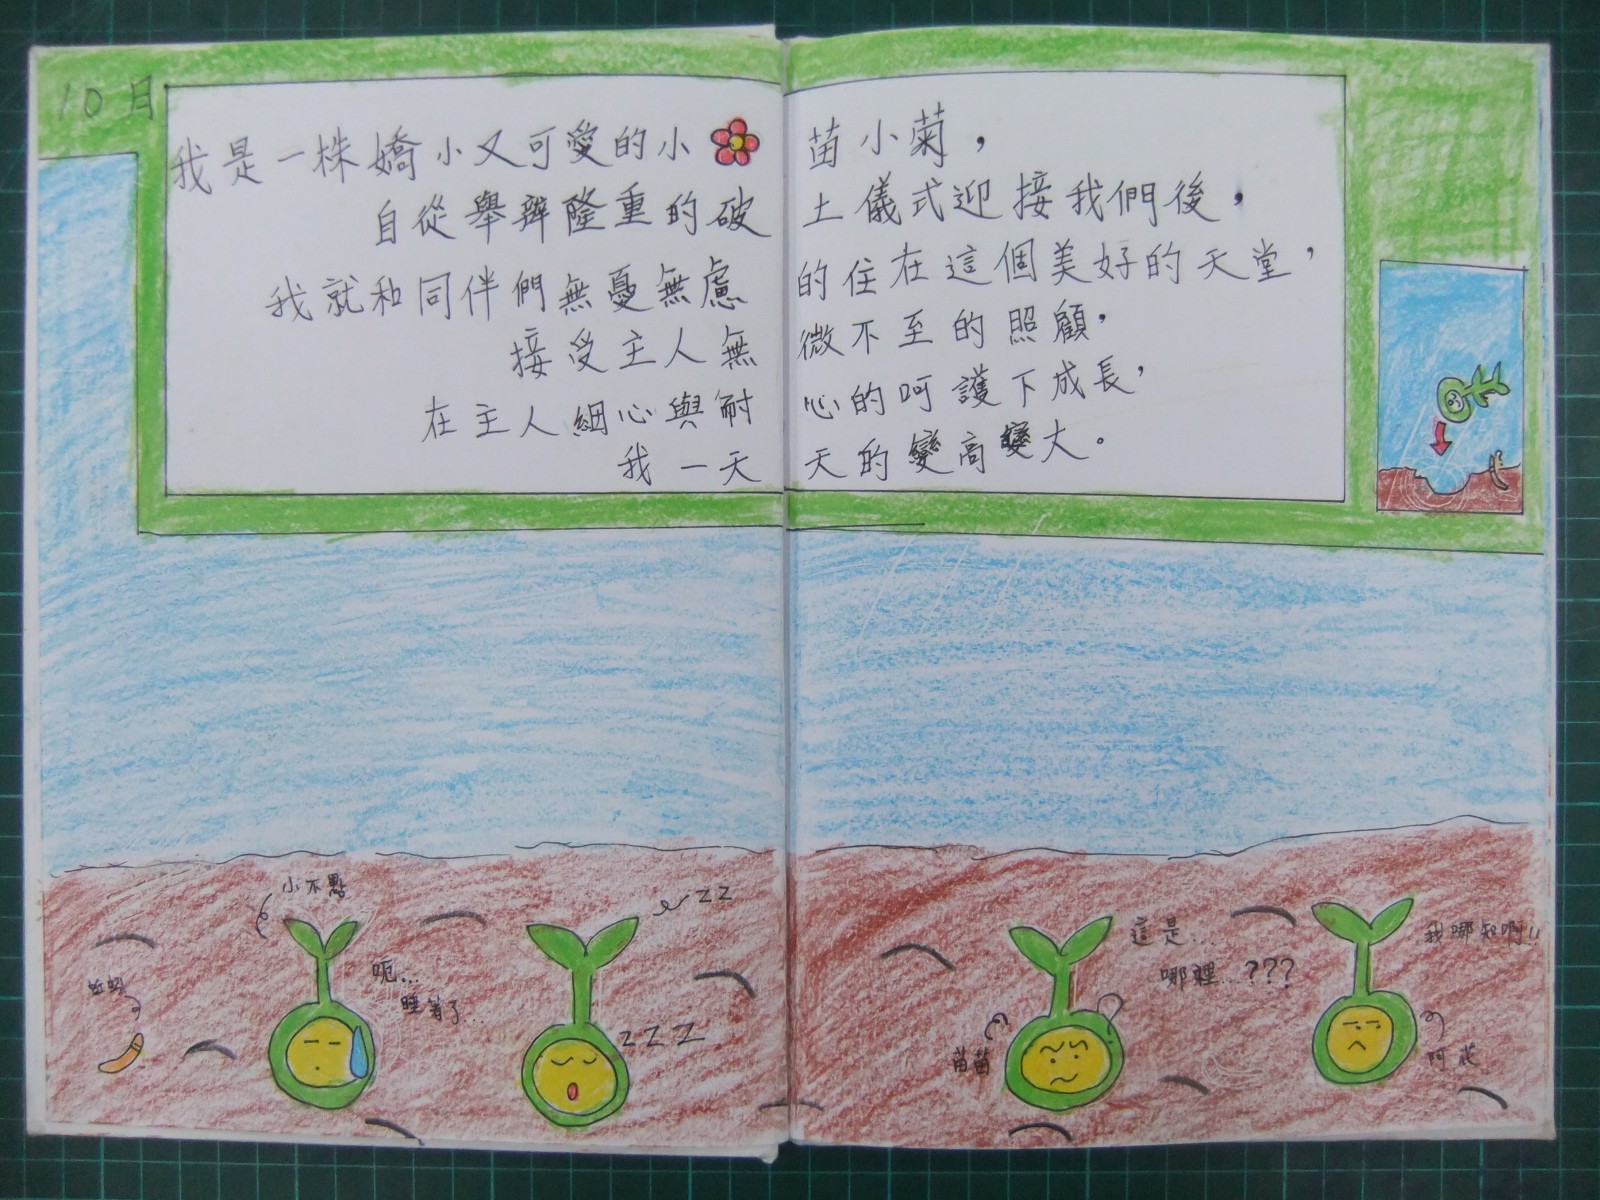 10月
我是一株嬌小又可愛的小苗小菊，
自從舉辦隆重的破土儀式迎接我們後，
我就和同伴們無憂無慮的住在這個美好的天堂，
接受主人無微不至的照顧，
在主人細心與耐心的呵護下成長，
我一天天的變高變大。
小不點
呃...
睡著了...
蚯蚓
zZZ
ZZZ
這是...
哪裡...???
苗苗
我哪知啊!!
阿花